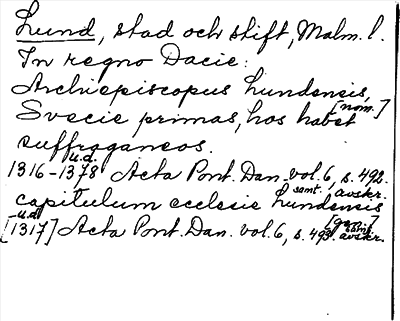 Lund, stad och stift, Malm. l.
In regno Dacie:
Archiepiscopus Lundensis, [nom.]
Svecie primas, hos habet
suffraganeos.
1316-1378 u.d. Acta Pont. Dan. vol. 6, s. 492. samt. avskr.
capitulum ecclesie Lundensis [gen.]
[1317] u.d. Acta Pont. Dan. vol. 6, s. 493. samt. avskr.